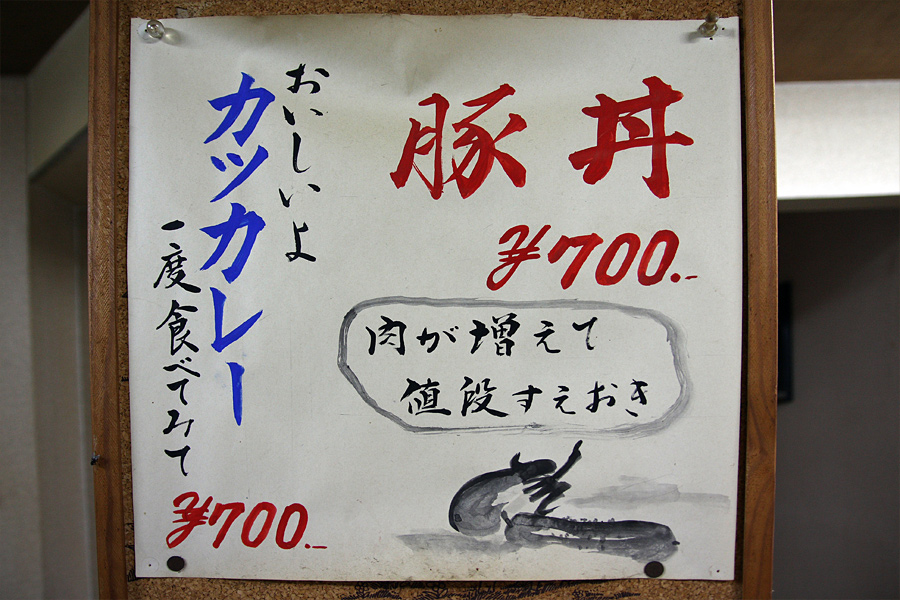 豚丼
¥700.-
肉が増えて
値段すえおき
おいしいよ
カツカレー
一度食べてみて
¥700.-